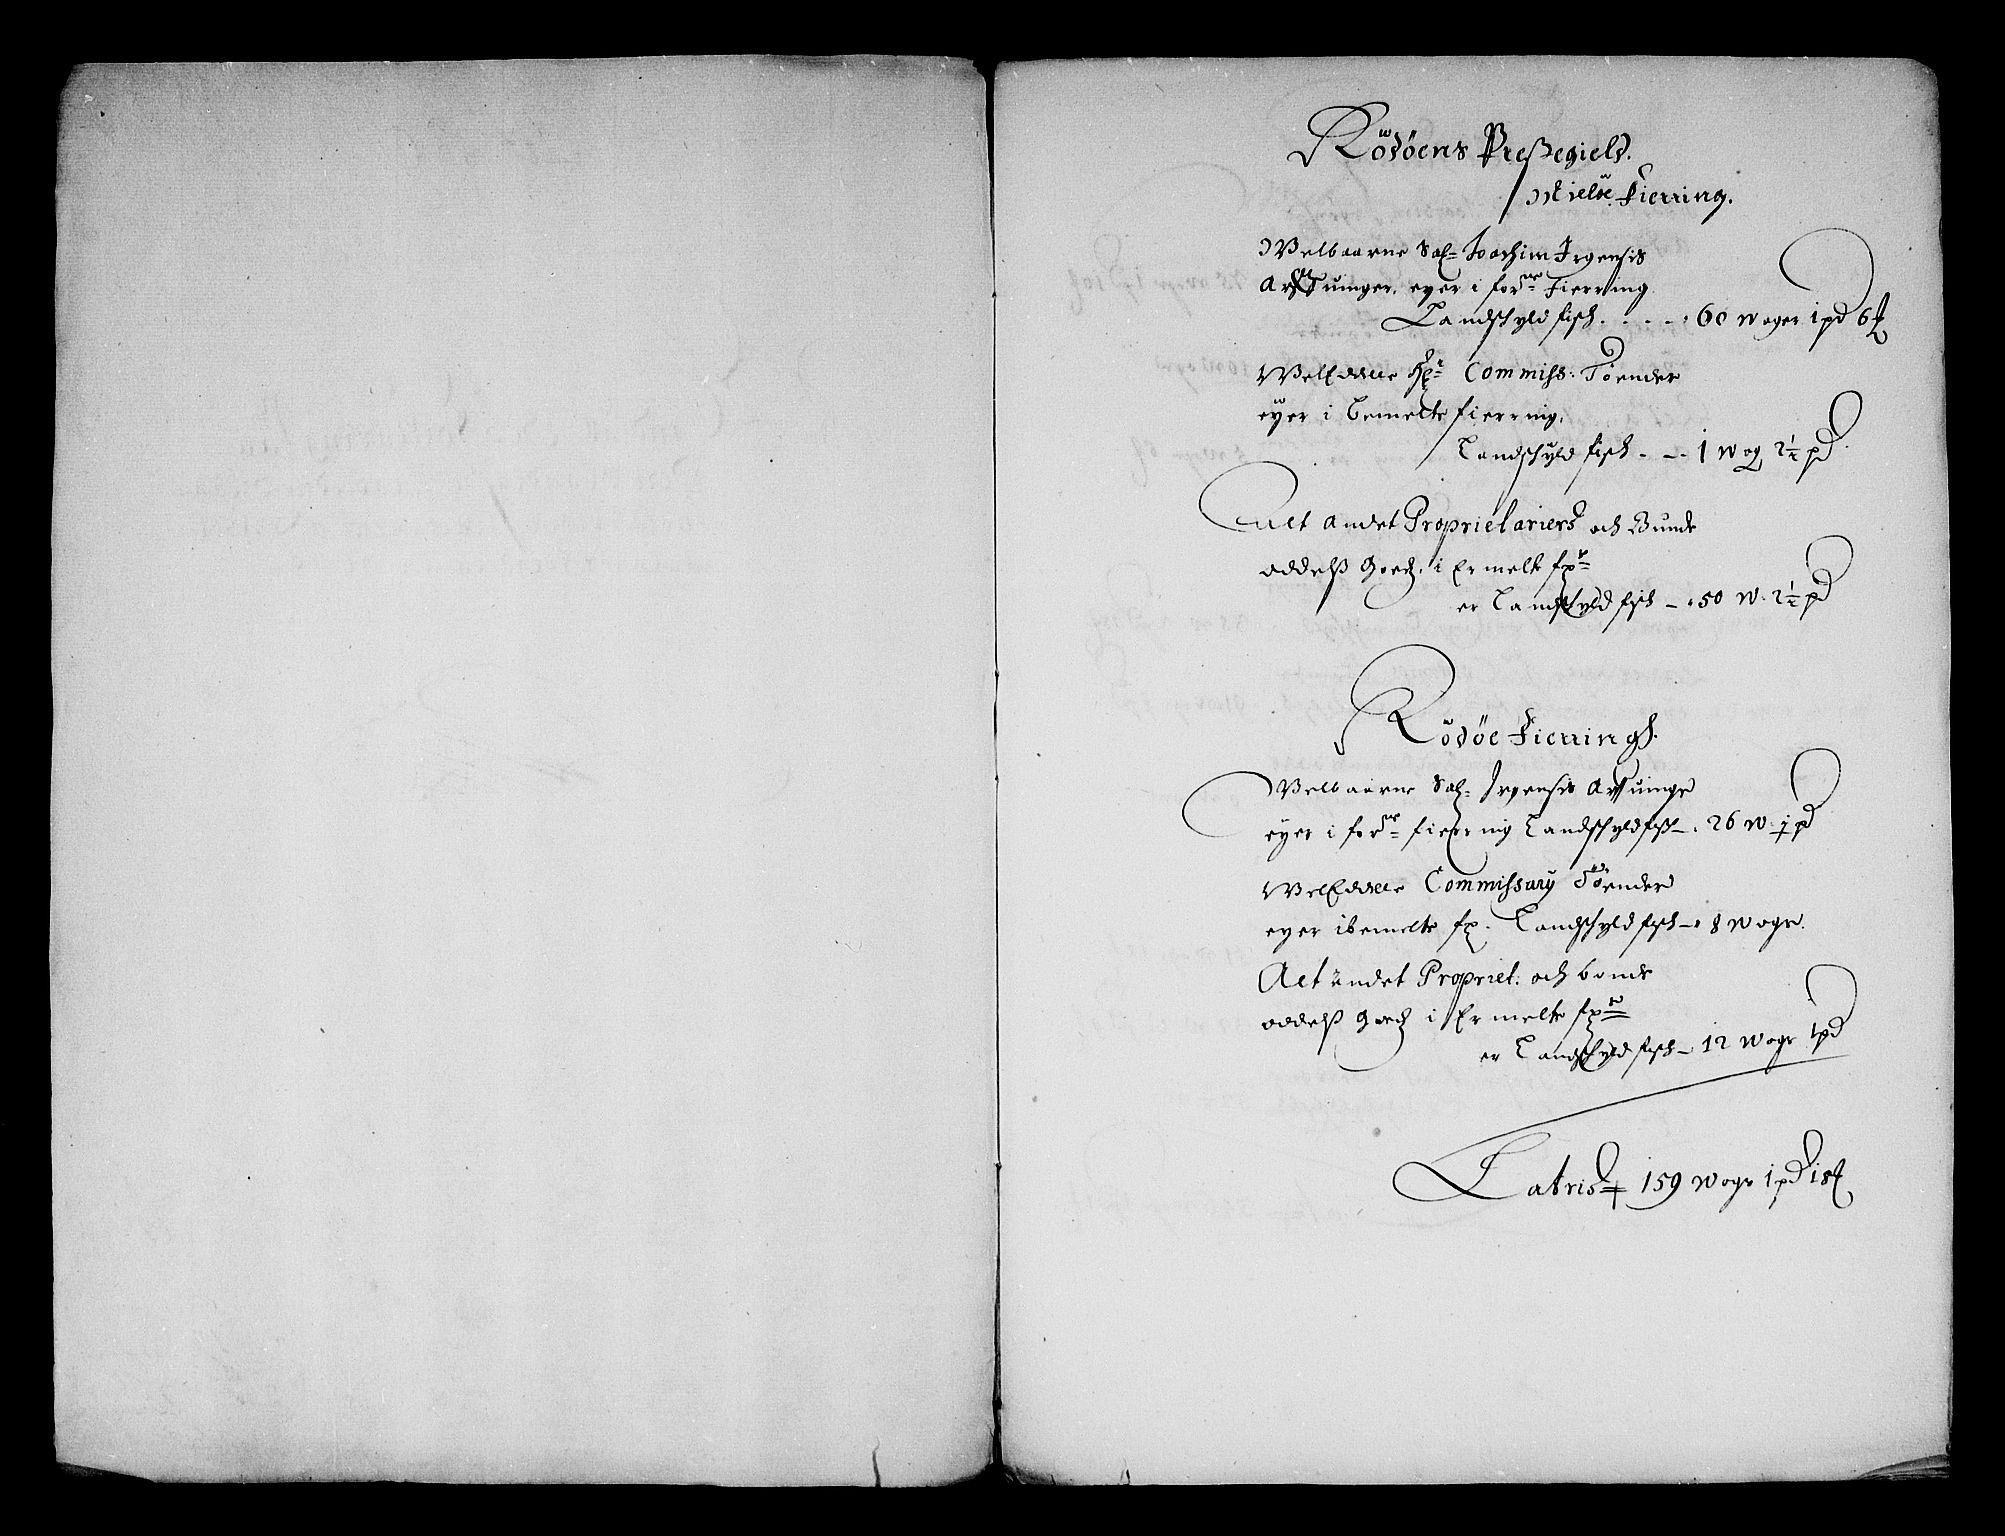 Rödöens Preßegield.
Mielöe Fierring.
Welbaarne Sal= Joachim Irgensis
Arfuinger, eyer i for^ne= Fierring
Landschyld fisch. . . . - : 60 woger 1 pd 6
WelEdelle H^r= Commiss: Tönder
eyer i bemelte fierring.
Landschyld fisch. - - 1 wog 2¼ pd
Alt andet Proprietariers och Bunde
oddelß goedz, i Ermelte
er Landschyld fisch - : 50 W: 2¼ pd
Rödöe Fierring.
Welbaarne Sal= Irgensis Arfuinge
eyer i for^ne= fierring Landschyldfisch - : 26 W: pd
WelEdelle Commissary Tönder
eyer ibemelte Landschyld fisch - : 8 woge.
Alt andet Propriet: och bonde
oddelß goedz i Ermelte
er Landschyld fisch - 12 woge 1 pd
Latris 159 woge 1 pd 18